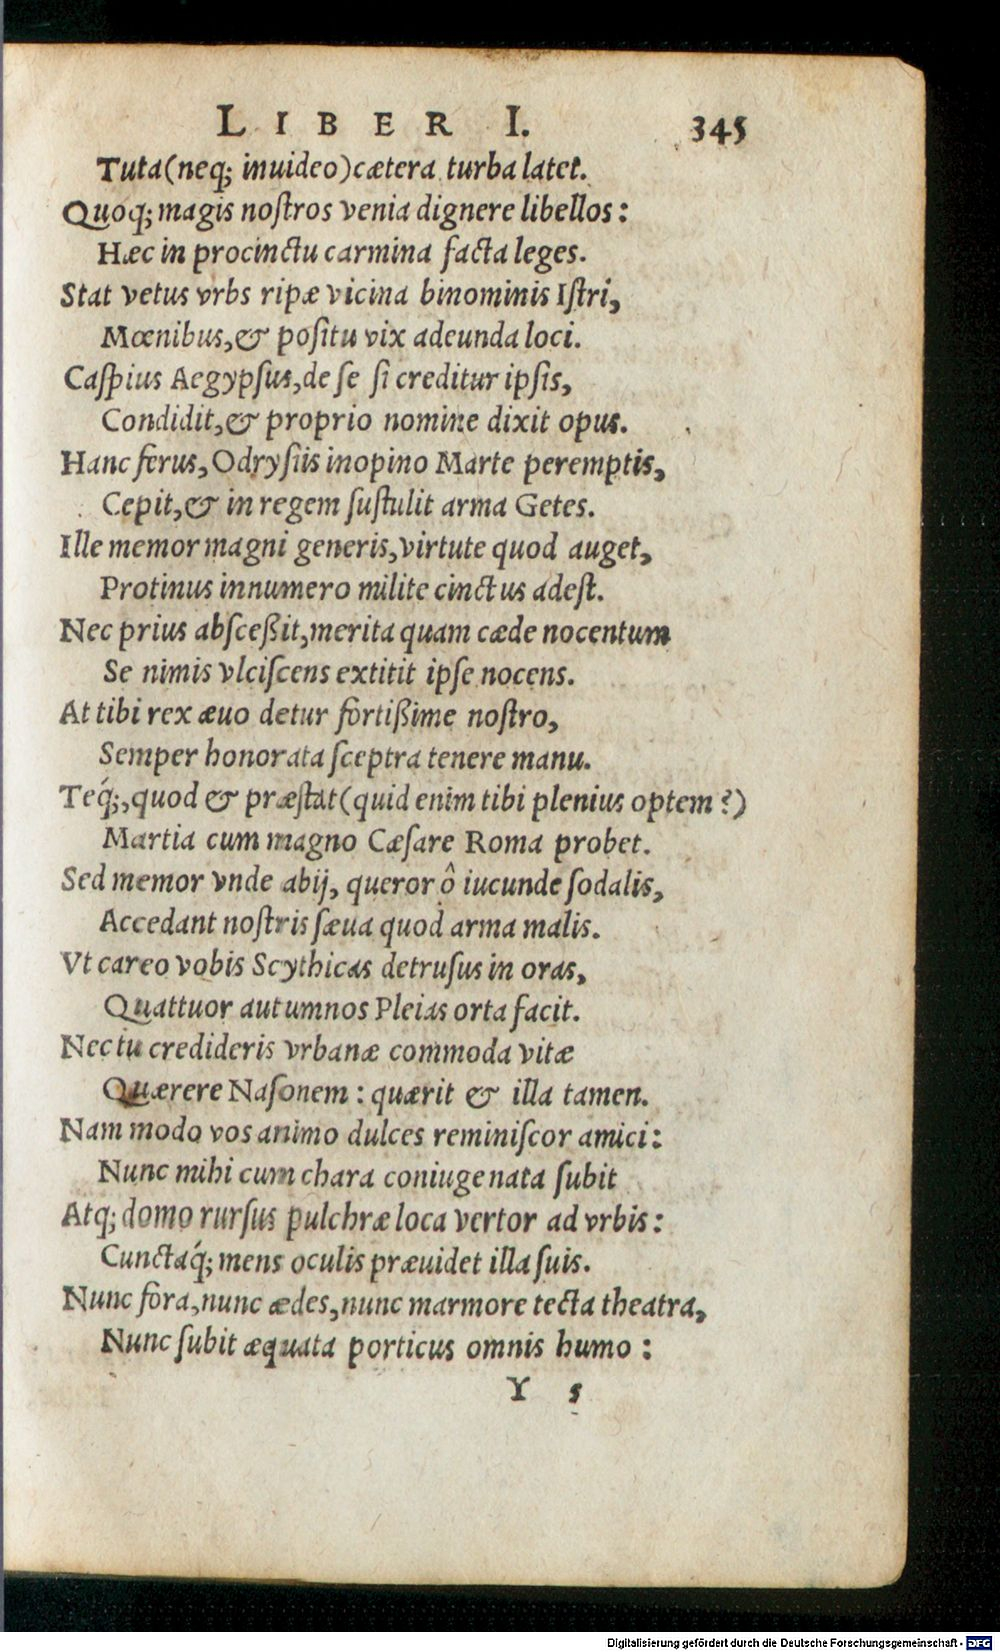 LIBER I. 345
Tuta (neq; inuideo) cætera turba latet.
Quoq; magis noſtros venia dignere libellos:
Hæc in procinctu carmina facta leges.
Stat vetus vrbs ripæ vicina binominis Iſtri,
Mœnibus, & poſitu vix adeunda loci.
Caſpius Aegypſus, de ſe ſi creditur ipſis,
Condidit, & proprio nomine dixit opus.
Hanc ferus, Odryſiis inopino Marte peremptis,
Cepit, & in regem ſuſtulit arma Getes.
Ille memor magni generis, virtute quod auget,
Protinus innumero milite cinctus adeſt.
Nec prius abſceßit, merita quam cæde nocentum
Se nimis vlciſcens extitit ipſe nocens.
At tibi rex æuo detur fortißime noſtro,
Semper honorata ſceptra tenere manu.
Teq́;, quod & præſtat (quid enim tibi plenius optem?)
Martia cum magno Cæſare Roma probet.
Sed memor vnde abij, queror ô iucunde ſodalis,
Accedant noſtris ſæua quod arma malis.
Vt careo vobis Scythicas detruſus in oras,
Quattuor autumnos Pleias orta facit.
Nec tu credideris vrbanæ commoda vitæ
Quærere Naſonem: quærit & illa tamen.
Nam modo vos animo dulces reminiſcor amici:
Nunc mihi cum chara coniuge nata ſubit
Atq; domo rurſus pulchræ loca vertor ad vrbis:
Cunctaq́; mens oculis præuidet illa ſuis.
Nunc fora, nunc ædes, nunc marmore tecta theatra,
Nunc ſubit æquata porticus omnis humo:
Y 5
Digitalisierung gefördert durch die Deutsche Forschungsgemeinschaft - DFG